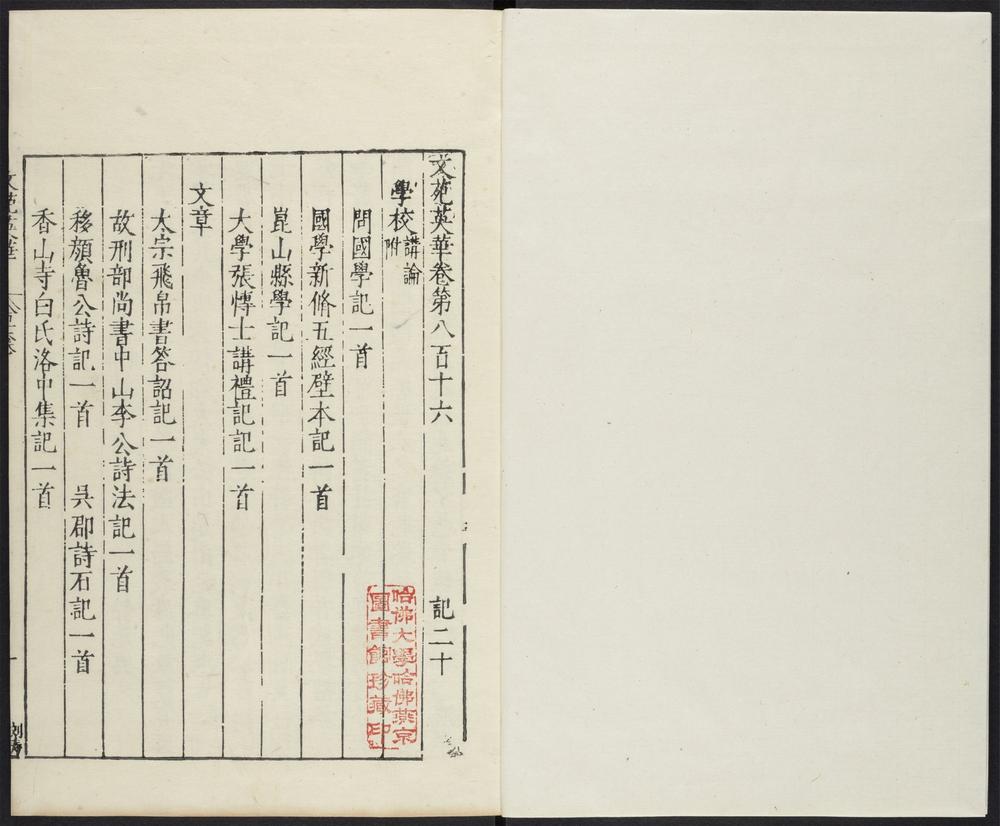 文苑英華卷第八百十六 記二十
學校講論附
問國學記一首
國學新脩五經壁本記一首
崑山縣學記一首
大學張愽士講禮記記一首
文章
太宗飛帛書答詔記一首
故刑部尚書中山李公詩法記一首
移顔魯公詩記一首 吳郡詩石記一首
香山寺白氏洛中集記一首
哈佛大學哈佛燕京
圖書館珍藏印